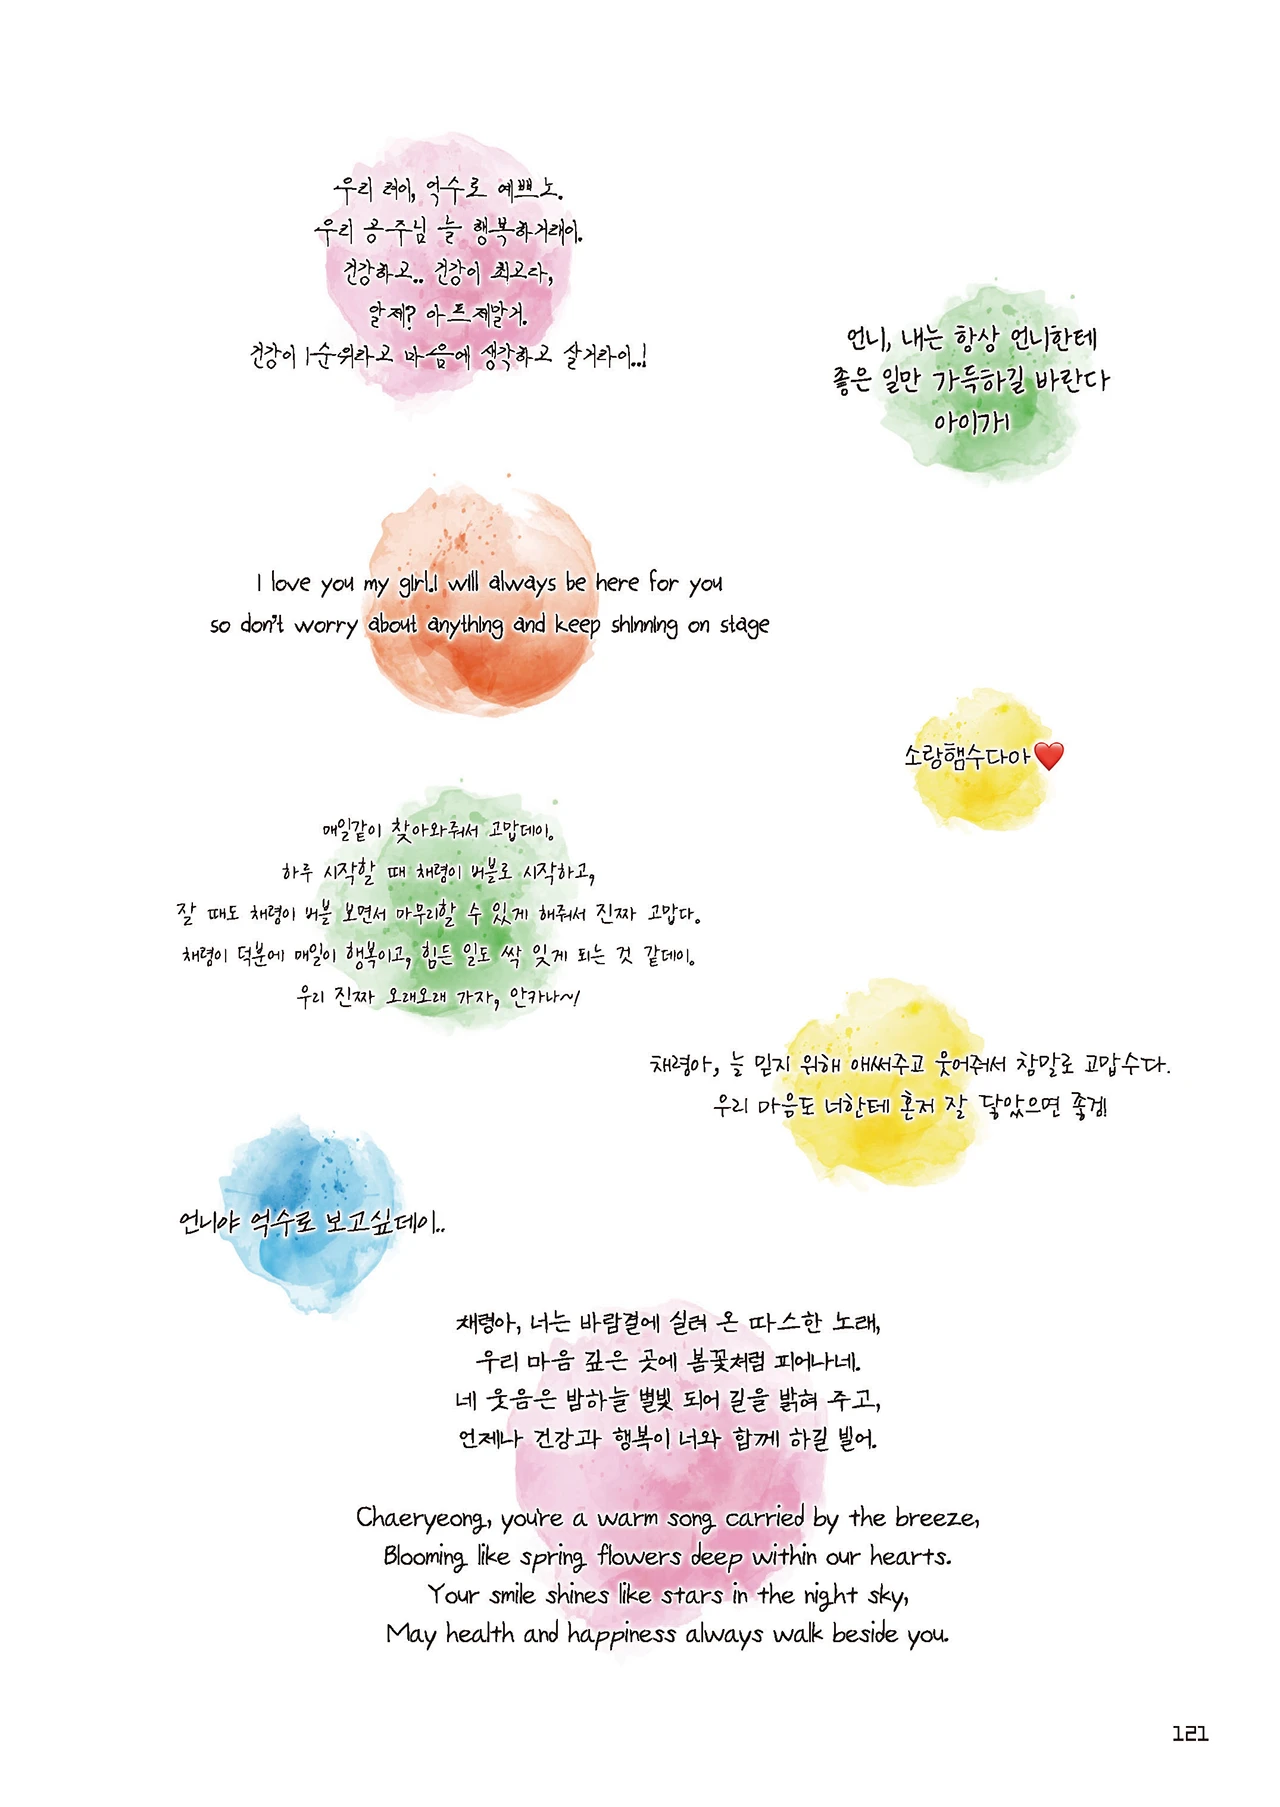 우리 려이, 억수로 예쁘노.
우리 공주님 늘 행복하거래이.
건강하고.. 건강이 최고다,
알제? 아프제말거.
건강이 1순위라고 마음에 생각하고 살거라이..!
언니, 내는 항상 언니한테
좋은 일만 가득하길 바란다
아이가!
I love you my girl.I will always be here for you
so don't worry about anything and keep shinning on stage
소랑햄수다아❤️
매일같이 찾아와줘서 고맙데이.
하루 시작할 때 채령이 버블로 시작하고,
잘 때도 채령이 버블 보면서 마무리할 수 있게 해줘서 진짜 고맙다.
채령이 덕분에 매일이 행복이고, 힘든 일도 싹 잊게 되는 것 같데이.
우리 진짜 오래오래 가자, 안카나~!
채령아, 늘 믿지 위해 애써주고 웃어줘서 참말로 고맙수다.
우리 마음도 너한테 혼저 잘 닿았으면 좋겜!
언니야 억수로 보고싶데이..
채령아, 너는 바람결에 실려 온 따스한 노래,
우리 마음 깊은 곳에 봄꽃처럼 피어나네.
네 웃음은 밤하늘 별빛 되어 길을 밝혀 주고,
언제나 건강과 행복이 너와 함께 하길 빌어.
Chaeryeong, you're a warm song carried by the breeze,
Blooming like spring flowers deep within our hearts.
Your smile shines like stars in the night sky,
May health and happiness always walk beside you.
121